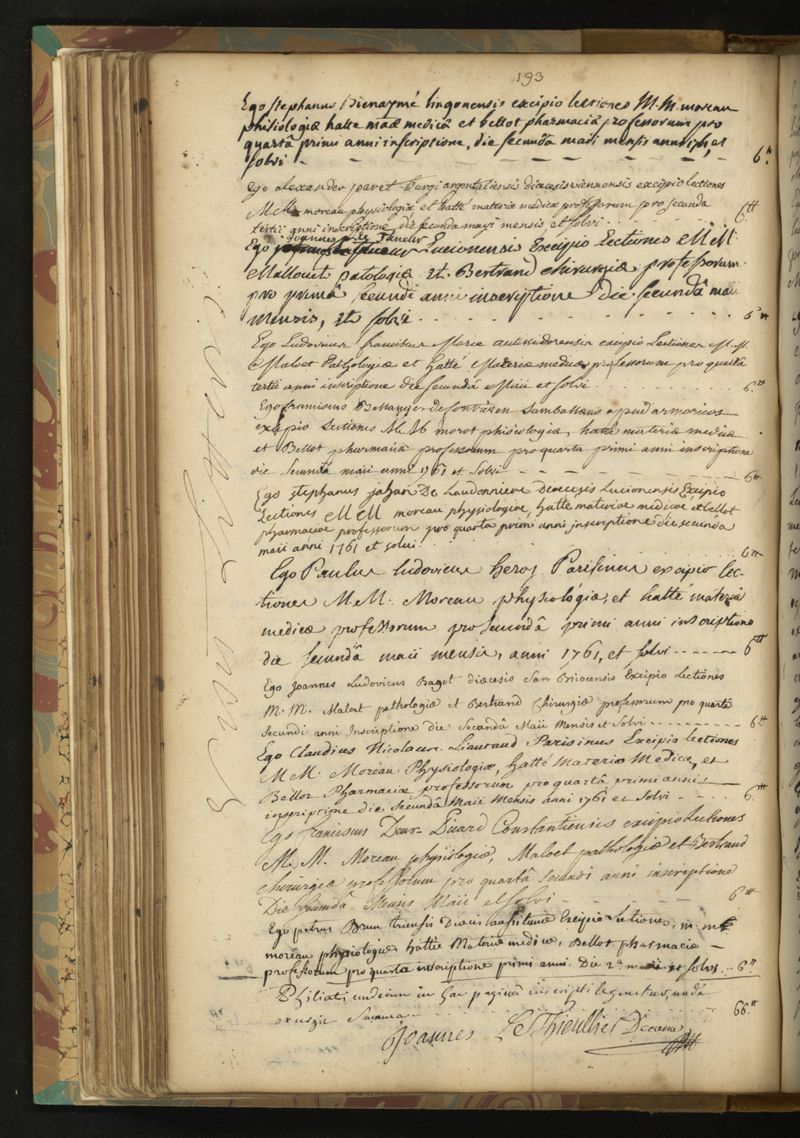 193
Ego stephanus Bienaymé lingonensis excipio lectiones M.M. moreau
phisiologiæ hatte matæ medicæ et bellot pharmaciæ professorum pro
quartâ primi anni inscriptione, die secunda maii mensis anni 1761, et
solvi - - - - - 6.tt
Ego alexander javet Burgi argentaliensis diœcesis viennensis excipio lectiones
M.M. moreau physiologiæ et hatté materiæ medicæ professorum pro secunda
tertii anni inscriptione die secunda maii mensis, et solvi 6tt
Ego joannes Lucionensis Excipio Lectiones MM.
Mallouet patologiæ et Bertrand chirurgiæ professorum
pro primâ secundi anni inscriptione die secundâ maii
mensis, et solvi 6tt
Ego Ludovicus franciscus Marie autissiodorensis excipio Lectiones M.M.
Maloet Pathologiæ et hatté Materiæ medicæ professorum pro quartâ
tertii anni inscriptione die secundâ Maii et solvi 6tt
Ego franciscus apud armoricos
excipio Lectiones M.M morot phisiologiæ, hatte materiæ medicæ
et Bellot pharmaciæ professorum pro quarta primi anni inscriptione
die secundâ maii anni 1761 et solvi 6tt
Ego stephanus jahan De Laudonniere Diœcesis Lucionensis Excipio
Lectiones MM moreau physiologiæ, hatte materiæ medicæ et bellot
pharmaciæ professorum pro quarta primi anni inscriptione die secunda
maii anni 1761 et solvi 6tt
Ego Paulus Ludovicus heros Parisinus excipio lec-
tiones M.M. Moreau physiologiæ, et hatté materiæ
medicæ professorum pro secundâ primi anni inscriptione
die secundâ maii mensis, anni 1761, et solvi 6tt
Ego Joannes Ludovicus Bagot diœcesis San Briocensis Excipio Lectiones
M.M. Maloet pathologiæ et Bertrand Chirurgiæ professorum pro quartâ
secundi anni Inscriptione die Secondâ Maii Mensis et Solvi 6tt
Ego Claudius Nicolaus Liautaud Parisinus Excipio lectiones
MM. Moreau Physiologiæ, hatté Materiæ Medicæ, et
Bellot Pharmaciæ professorum pro quartâ primi anni
inscriptione die Secundâ Maii Mensis anni 1761 et Solvi 6.tt
Ego franciscus Constantiensis excipio Lectiones
M.M. Moreau physiologiæ, Maloet pathologiæ et Bertrand
chirurgiæ professorum pro quartâ secundi anni inscriptione
Die secundâ Mensis Maii et solvi 6tt
Ego petrus Brun Excipio Lectiones, m. m
moreau physiologiæ hatte Materiæ medicæ, Bellot pharmaciæ
professorum pro quarta inscriptione primi anni. Die 2a maii et solvi 6.tt
Philiatri undecim in hac paginâ inscripti leguntur, unde
exurgit Summa 66.tt
Joannes Le Thieullier Decanus